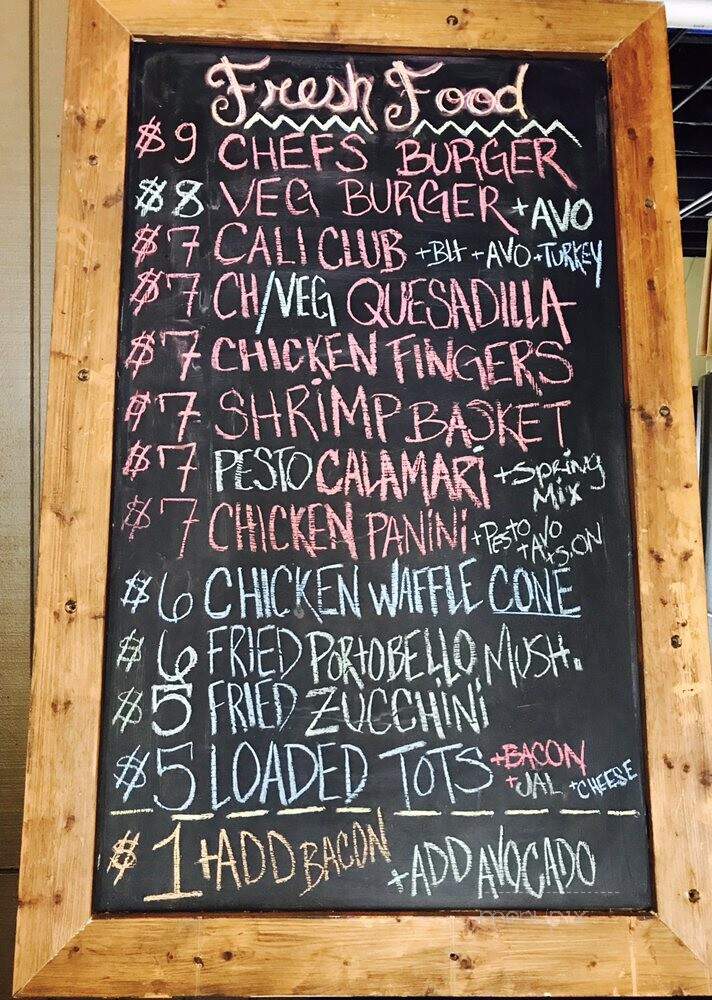 Fresh Food
$9 CHEFS BURGER
$8 VEG BURGER +AVO
$7 CALI CLUB +BLT +AVO +TURKEY
$7 CH/VEG QUESADILLA
$7 CHICKEN FINGERS
$7 SHRIMP BASKET
$7 PESTO CALAMARI +SPRING
MIX
$7 CHICKEN PANINI +PESTO +AVO
$6 CHICKEN WAFFLE CONE
$6 FRIED PORTOBELLO MUSH.
$5 FRIED ZUCCHINI
$5 LOADED TOTS +BACON
+JAL +CHEESE
$1 +ADD BACON +ADD AVOCADO